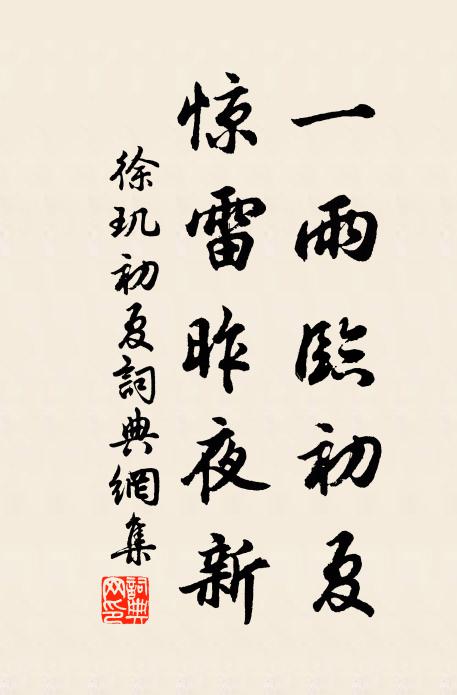 一雨臨初夏
惊雷昨夜新
徐玑初夏詞典網集
詞典网印